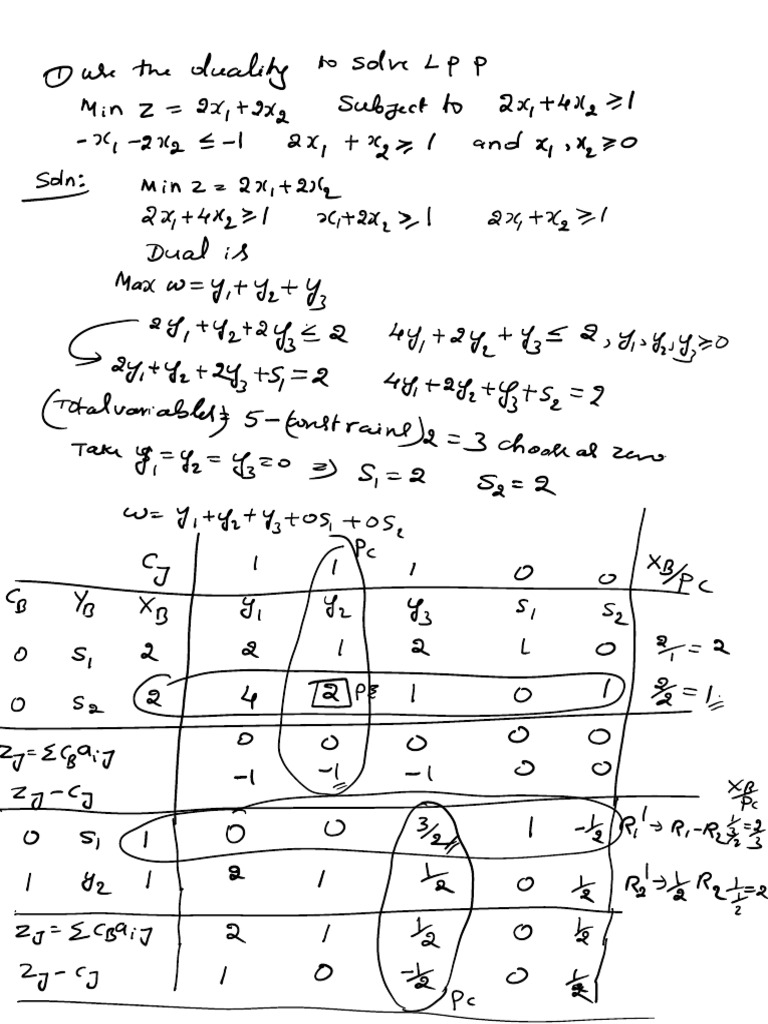 ① use the duality to solve L P P
Min Z = 2x₁+2x₂ Subject to 2x₁+4x₂ ≥ 1
-x₁-2x₂ ≤ -1 2x₁+x₂ ≥ 1 and x₁,x₂ ≥ 0
Soln: Min Z = 2x₁+2x₂
2x₁+4x₂ ≥ 1 x₁+2x₂ ≥ 1 2x₁+x₂ ≥ 1
Dual is
Max w = y₁+y₂+y₃
2y₁+y₂+2y₃ ≤ 2 4y₁+2y₂+y₃ ≤ 2, y₁,y₂,y₃ ≥ 0
2y₁+y₂+2y₃+S₁ = 2 4y₁+2y₂+y₃+S₂ = 2
(Total variables) 5-(constrains)2 = 3 choose as zero
Take y₁=y₂=y₃=0 ⇒ S₁=2 S₂=2
w = y₁+y₂+y₃+0S₁+0S₂
PC
CJ 1 1 1 0 0 XB/PC
CB YB XB y₁ y₂ y₃ S₁ S₂
0 S₁ 2 2 1 2 1 0 2/1 = 2
0 S₂ 2 4 2 1 0 1 2/2 = 1
ZJ=ΣCBaiJ 0 0 0 0 0
ZJ-CJ -1 -1 -1 0 0
XB/PC
0 S₁ 1 0 0 3/2 1 -1/2 R₁' → R₁-R₂' 1/3/2 = 2/3
1 y₂ 1 2 1 1/2 0 1/2 R₂' → 1/2 R₂ 1/1/2 = 2
ZJ=ΣCBaiJ 2 1 1/2 0 1/2
ZJ-CJ 1 0 -1/2 0 1/2
PC